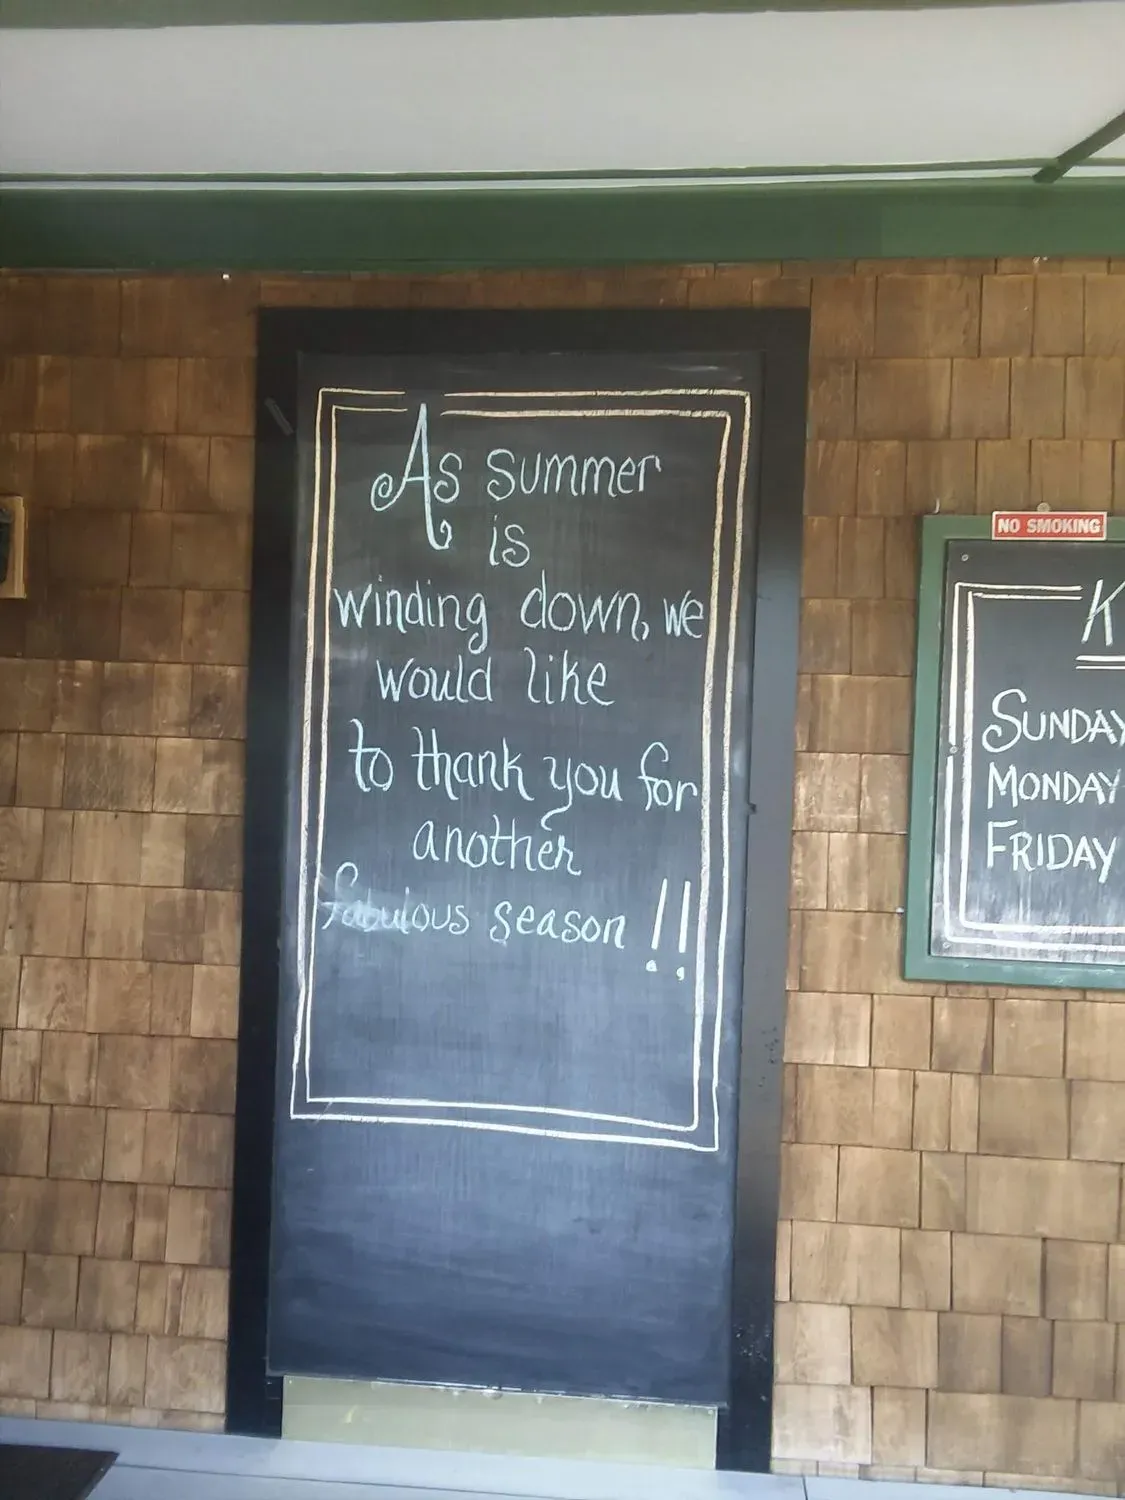 As summer
is
winding down, we
would like
to thank you for
another
fabulous season !!
NO SMOKING
K
SUNDAY
MONDAY
FRIDAY